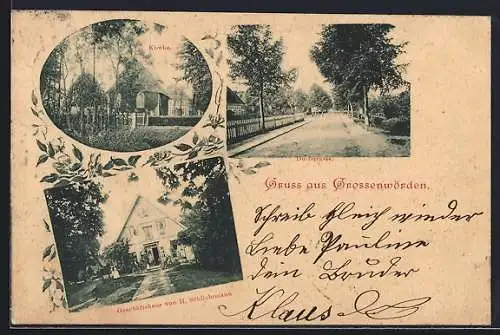 Kirche.
Dorfstrasse.
Gruss aus Grossenwörden.
Geschäftshaus von H.
Schreib gleich wieder
Liebe Pauline
dein Bruder
Klaus